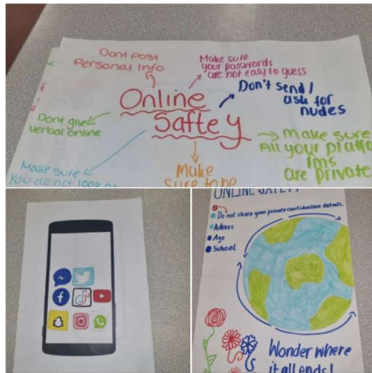 Dont Post
Personal Info
Make sure
your passwords
are not easy to guess
Don't send /
ask for
nudes
Online
Saftey
Dont give
verbal online
Make sure
All your platfo
rms
are private
Make sure
you do not look at
Make
sure to be
ONLINE SAFETY
Do not share your private confidential details.
Adress
Age
School
Wonder where
it all ends!